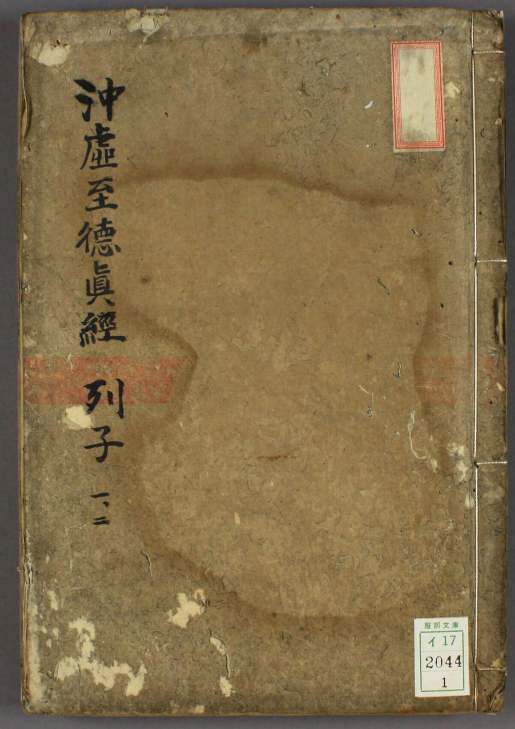 沖虛至德眞經 列子 一、二
服部文庫
イ 17
2044
1